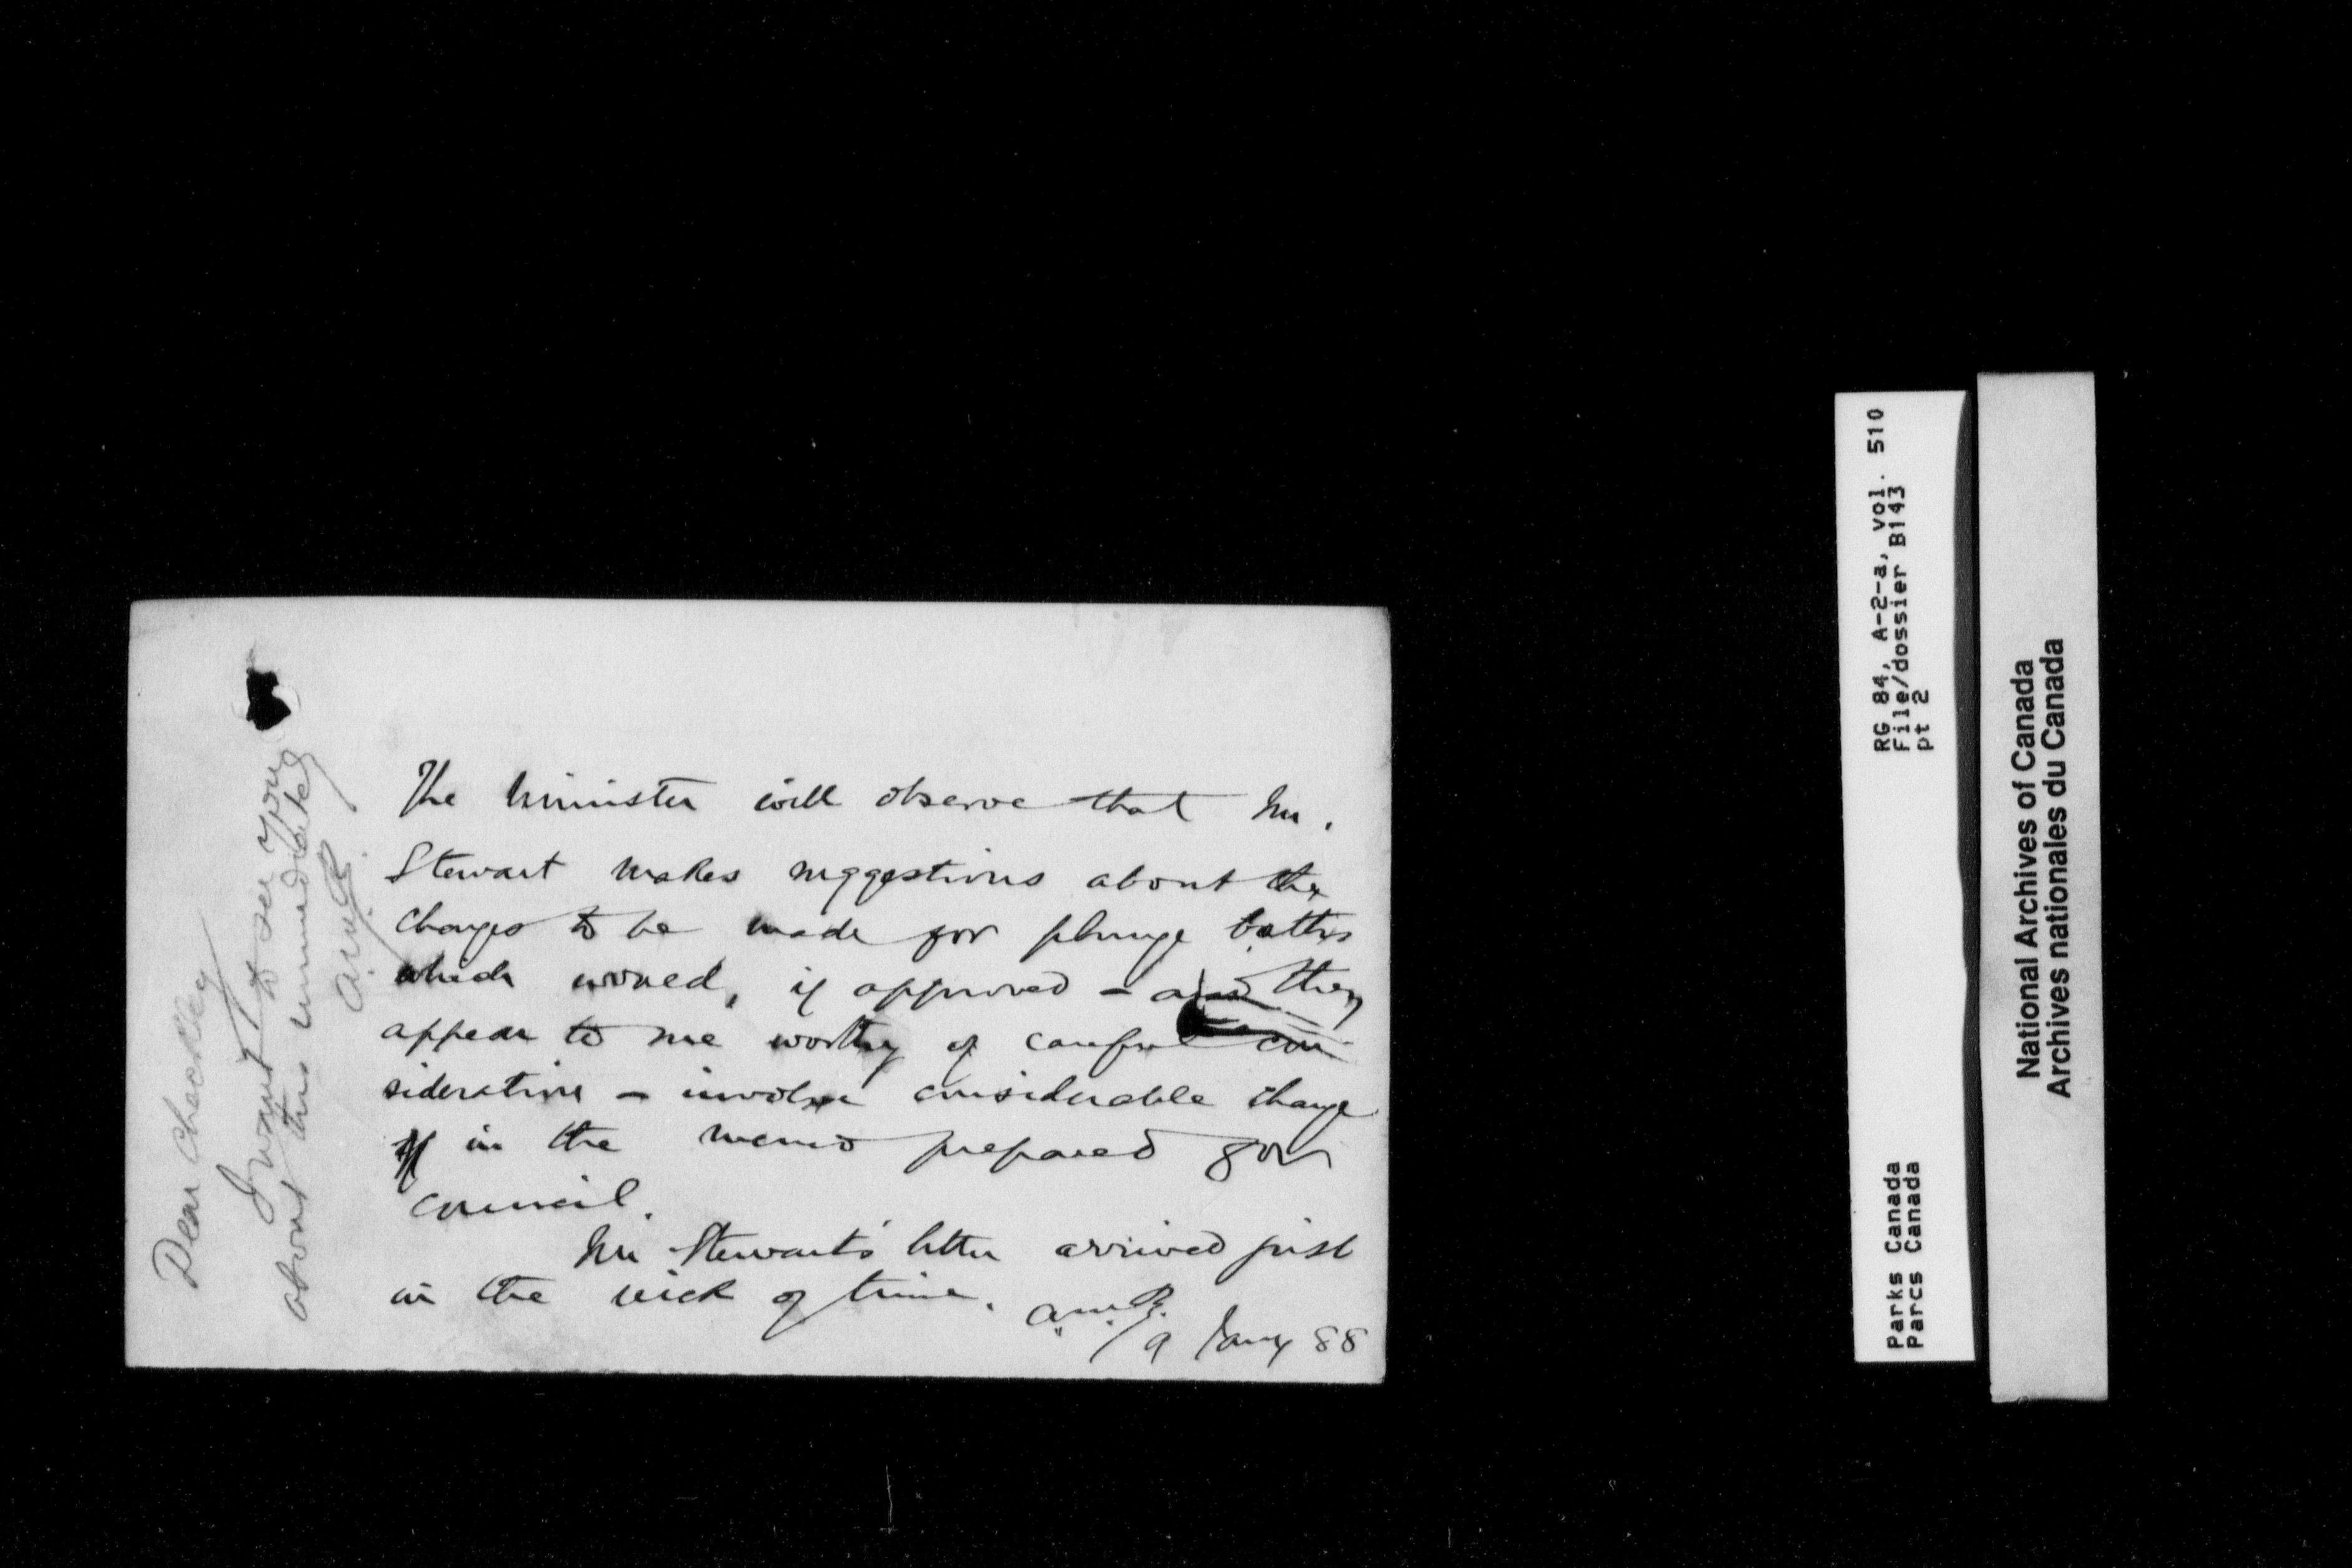 The Minister will observe that Mr.
Stewart makes suggestions about the
changes to be made for plunge baths
which would, if approved - and they
appear to me worthy of careful con
sideration - involve considerable change
in the memo prepared for
council.
Mr Stewart's letter arrived just
in the nick of time. A.M.B.
9 Jany 88
Dear Checkley
I want to see you
about this immediately
A.M.B.
RG 84, A-2-a, vol. 510
File/dossier B143
pt 2
Parks Canada
Parcs Canada
National Archives of Canada
Archives nationales du Canada